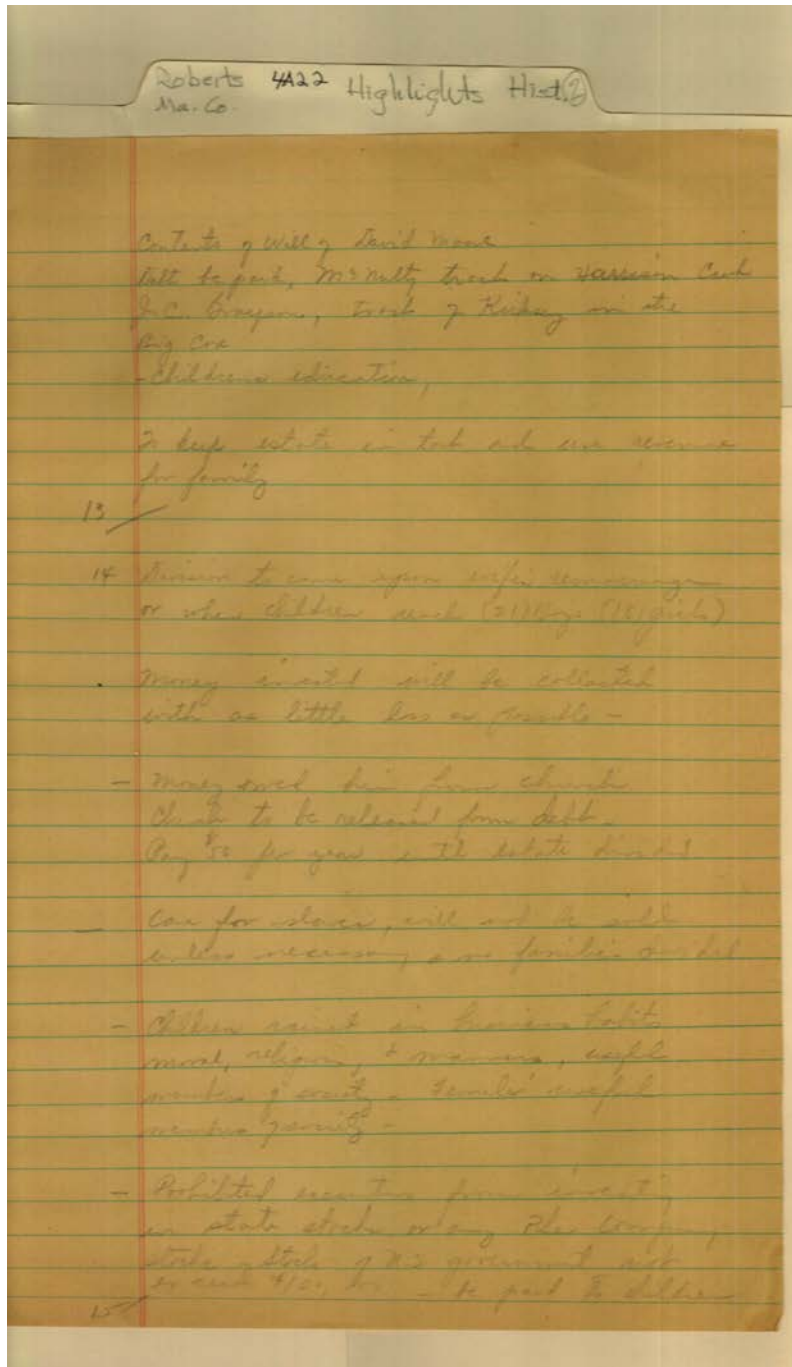 Roberts 4A22 Highlights Hist. 2
Ma. Co.
Contents of Will of David Moore
Debt be paid, McNulty track on Harrison Creek
J.C. Grayson, track of Kirksey in the
Big Cove
- Childrens education,
To keep estate in tact and use revenue
for family
13
14 Division to come upon wife's remarriage
or when children reach (21) Boys (18) girls)
Money invested will be collected
with as little loss as possible -
- Money owed him from church
Church to be released from debt -
Pay $50 per year until estate divided
- Care for slaves, will not be sold
unless necessary, families
- Children raised in business habits
moral, religion, & manners, useful
members of society - Females useful
members society -
- Prohibited executors from investing
in state stocks or any other company
stocks, stocks of U.S. government not
to be paid to children
15